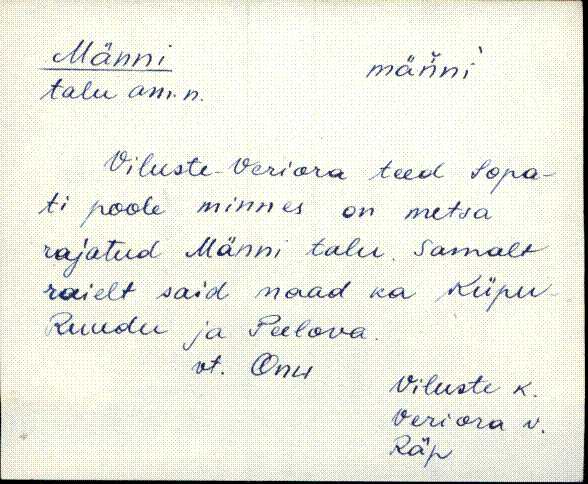 Männi
mäňni`
talu am.n.
Viluste-Veriora teed Sopa-
ti poole minnes on metsa
rajatud Männi talu. Samalt
raielt said maad ka Küpu-
Ruudu ja Peelova.
vt. Onu
Viluste k.
Veriora v.
Räp